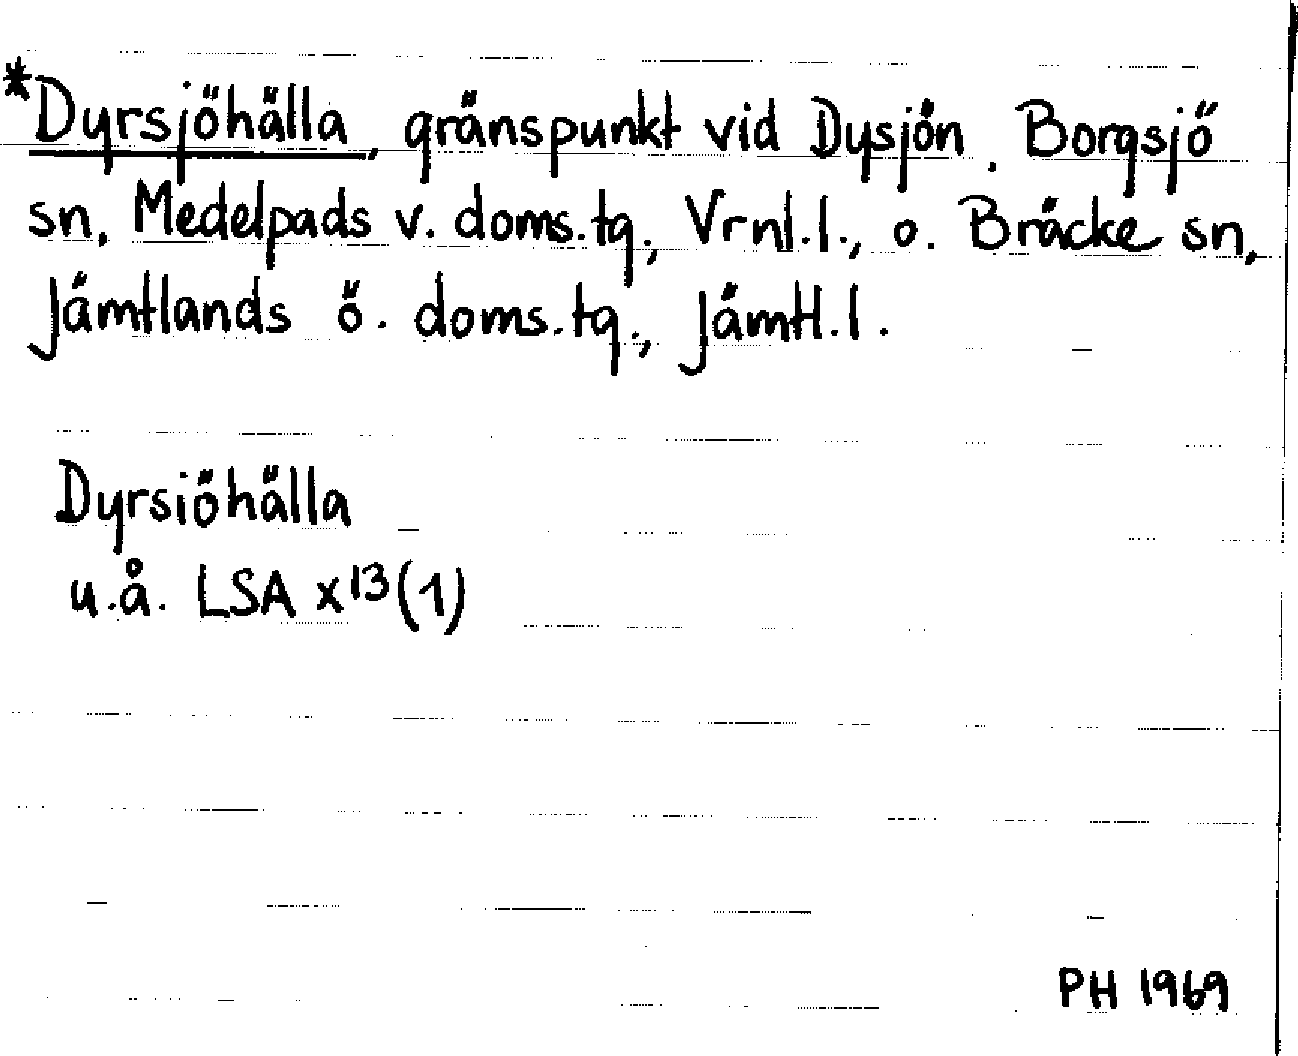 *Dyrsjöhälla, gränspunkt vid Dysjön. Borgsjö
sn, Medelpads v. doms.tg., Vrnl.l., o. Bräcke sn,
Jämtlands ö. doms.tg., Jämtl.l.
Dyrsiöhälla
u.å. LSA x13(1)
PH 1969